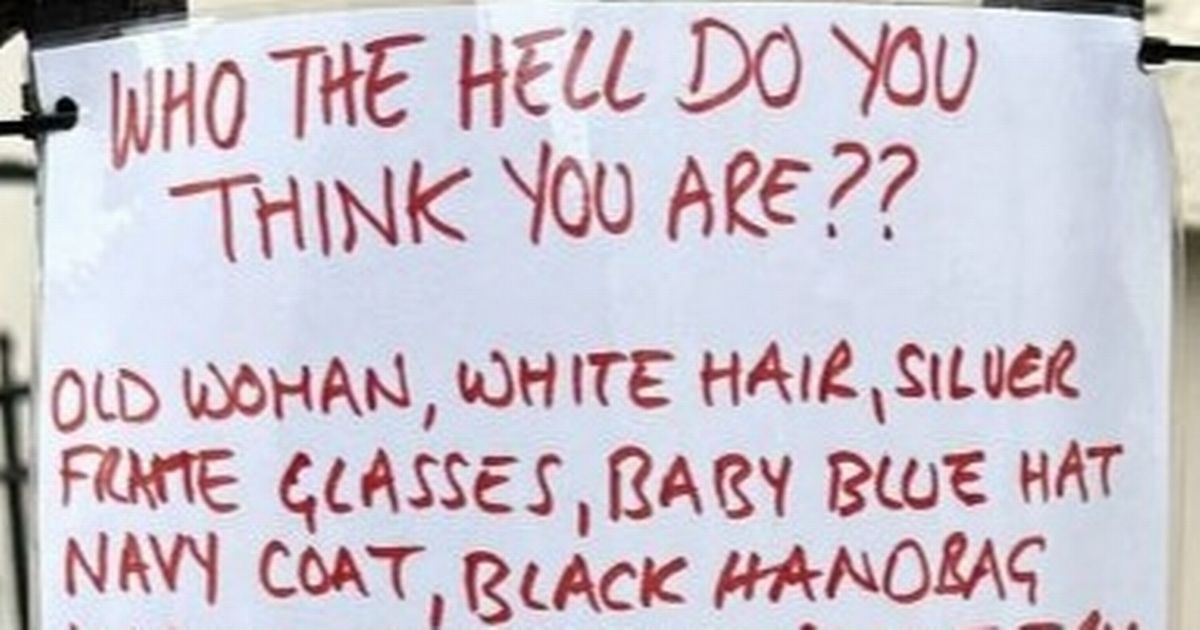 WHO THE HELL DO YOU
THINK YOU ARE??
OLD WOMAN, WHITE HAIR, SILVER
FRAME GLASSES, BABY BLUE HAT
NAVY COAT, BLACK HANDBAG